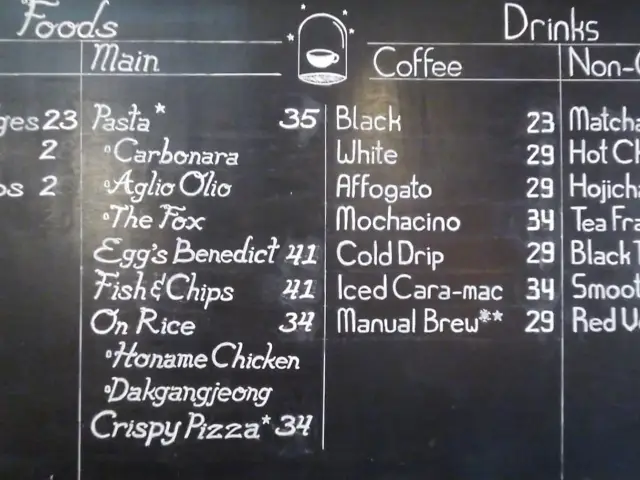 Foods
Main
Pasta* 35
°Carbonara
°Aglio Olio
°The Fox
Egg's Benedict 41
Fish & Chips 41
On Rice 34
°Honame Chicken
°Dakgangjeong
Crispy Pizza* 34
23
2
2
Drinks
Coffee
Black 23
White 29
Affogato 29
Mochacino 34
Cold Drip 29
Iced Cara-mac 34
Manual Brew** 29
Matcha
Hot
Tea
Black
Red